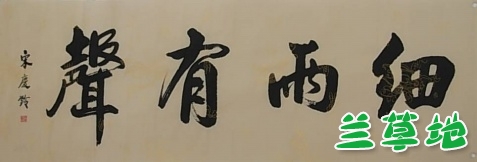 細雨有聲
宋慶齡
兰草地